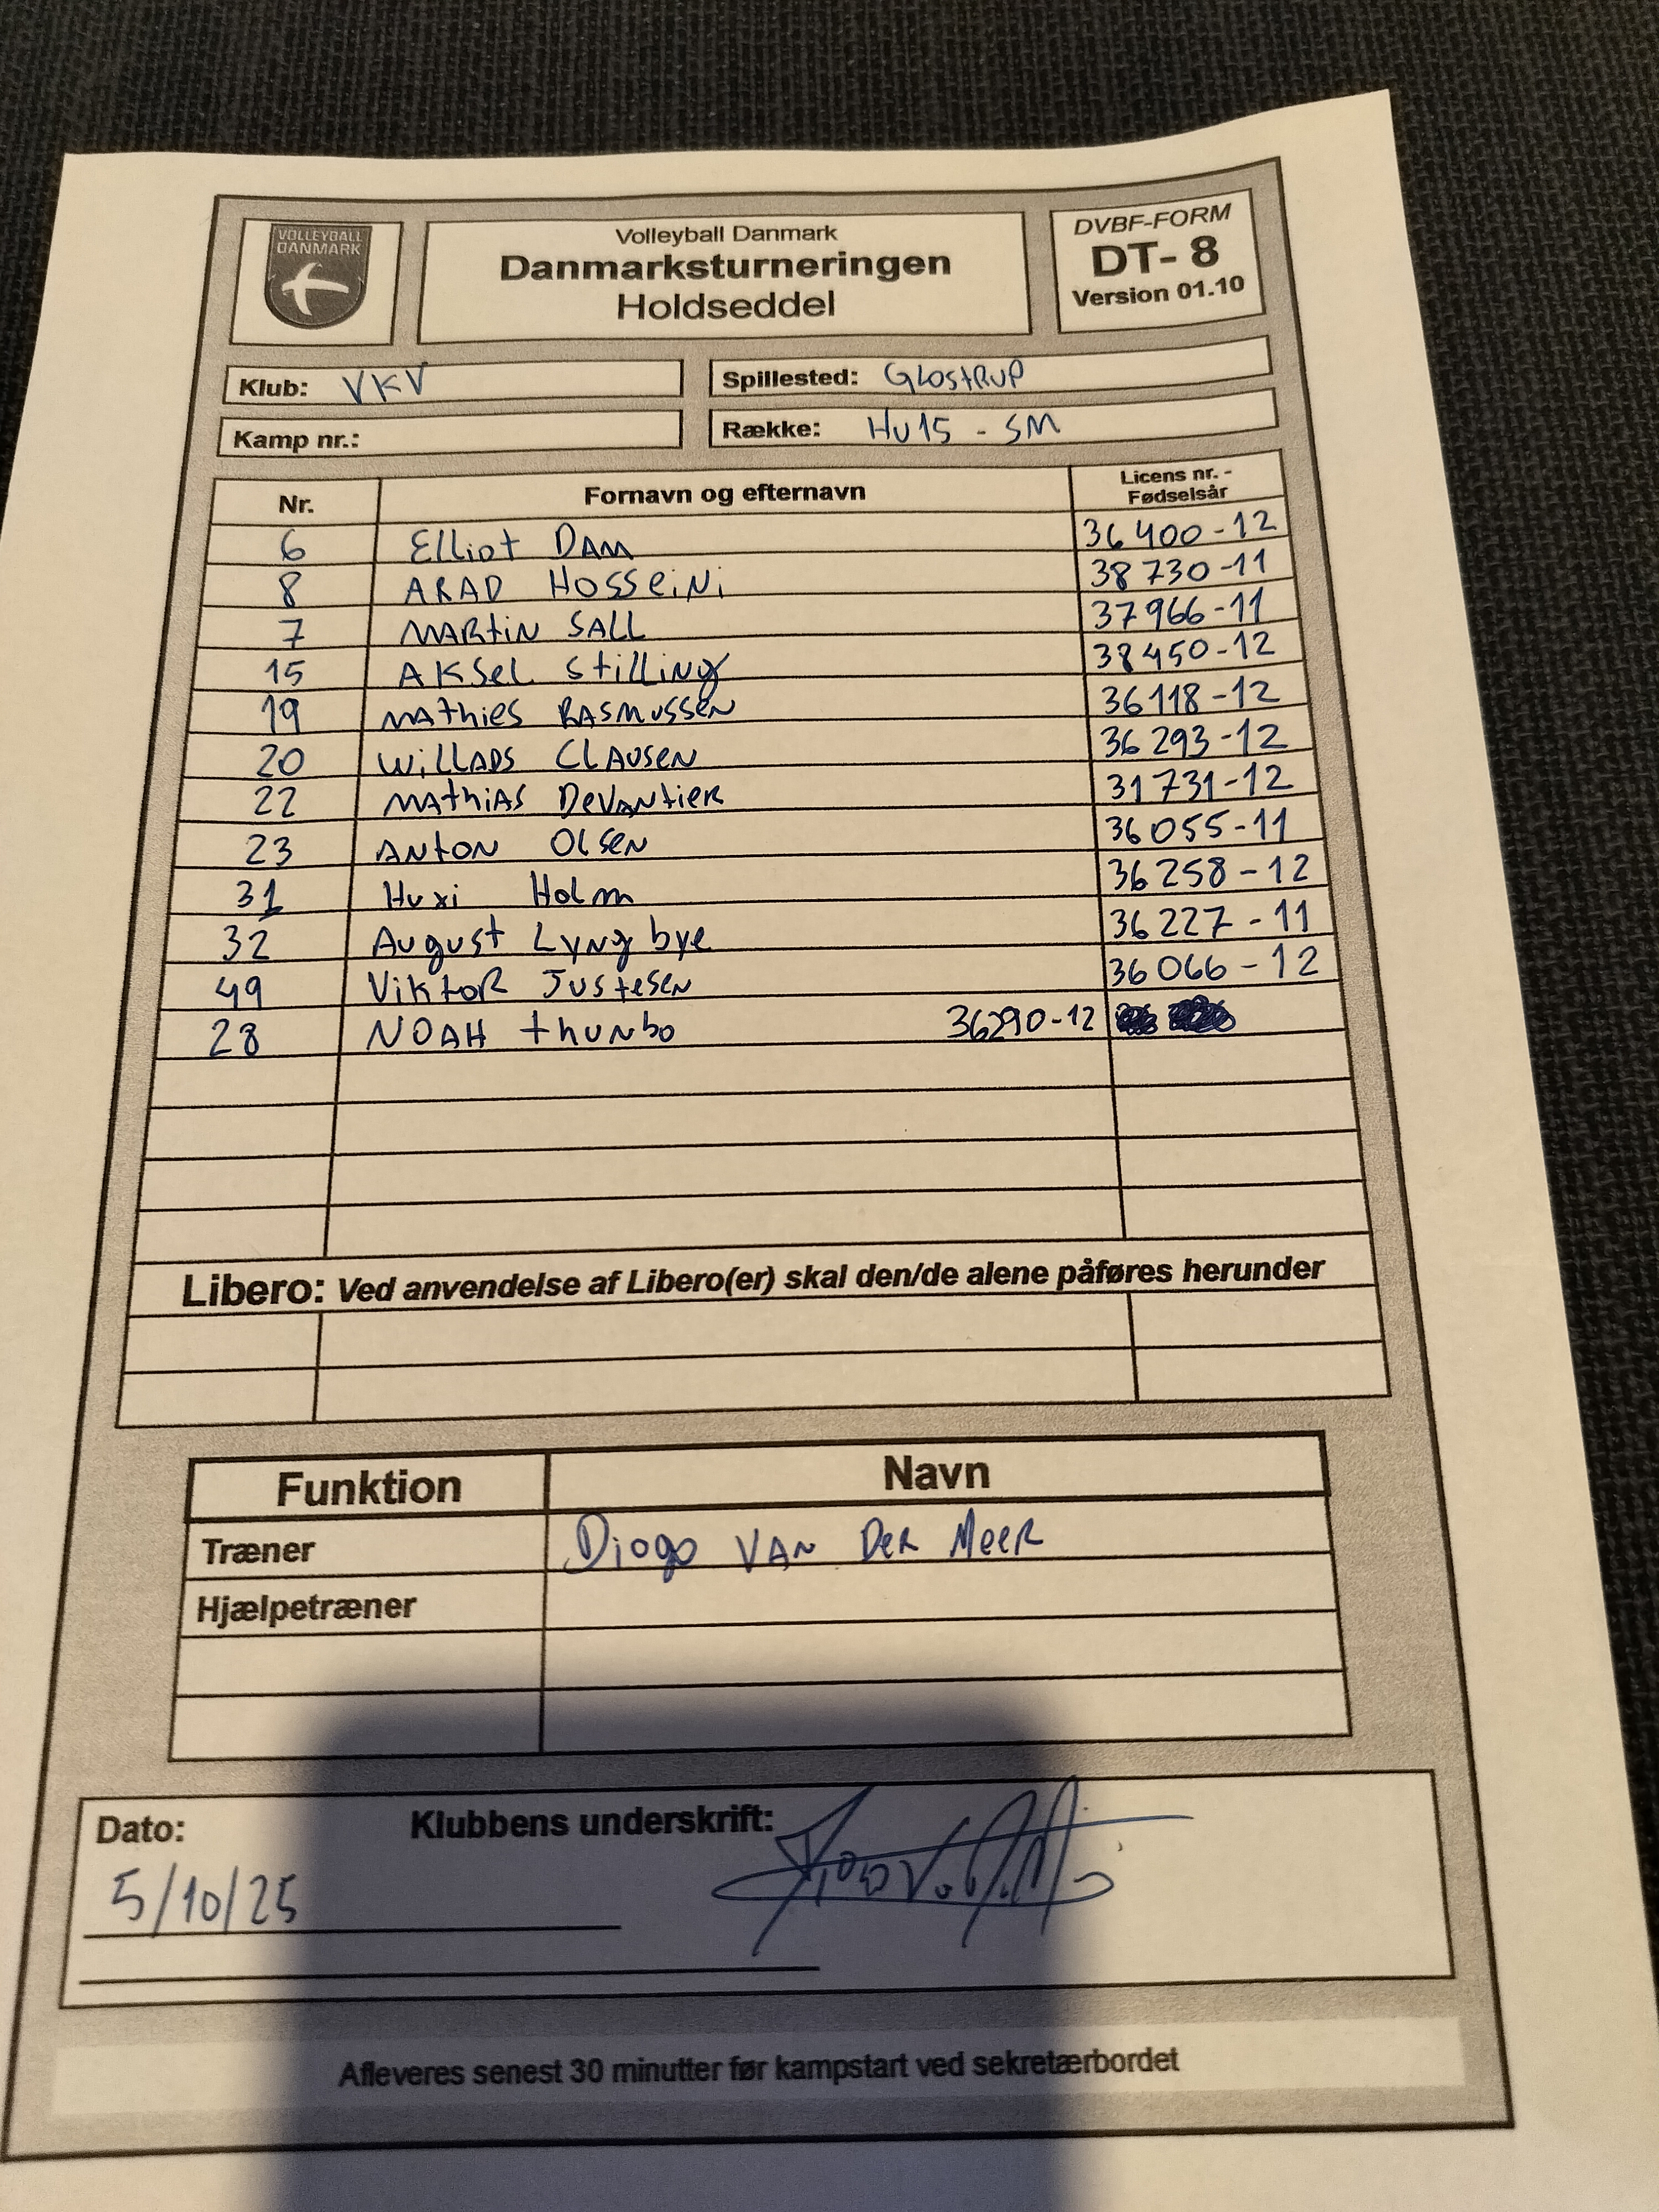 VOLLEYBALL
DANMARK
Volleyball Danmark
Danmarksturneringen
Holdseddel
DVBF-FORM
DT- 8
Version 01.10
Klub: VKV
Spillested: GLOSTRUP
Kamp nr.:
Række: HU15 - SM
Nr. Fornavn og efternavn Licens nr. - Fødselsår
6 Elliot DAM 36400-12
8 ARAD HOSSEiNi 38730-11
7 MARtiN SALL 37966-11
15 AKSEL StilliNg 38450-12
19 MAthies RASMUSSEN 36118-12
20 WiLLADS CLAUSEN 36293-12
22 MAthiAS DeVANtieR 31731-12
23 ANtON OlSEN 36055-11
31 Huxi Holm 36258-12
32 August Lyngbye 36227-11
49 ViktoR Justesen 36066-12
28 NOAH thunbo 36290-12
Libero: Ved anvendelse af Libero(er) skal den/de alene påføres herunder
Funktion Navn
Træner Diogo VAN DER MEER
Hjælpetræner
Dato: Klubbens underskrift:
5/10/25
Afleveres senest 30 minutter før kampstart ved sekretærbordet